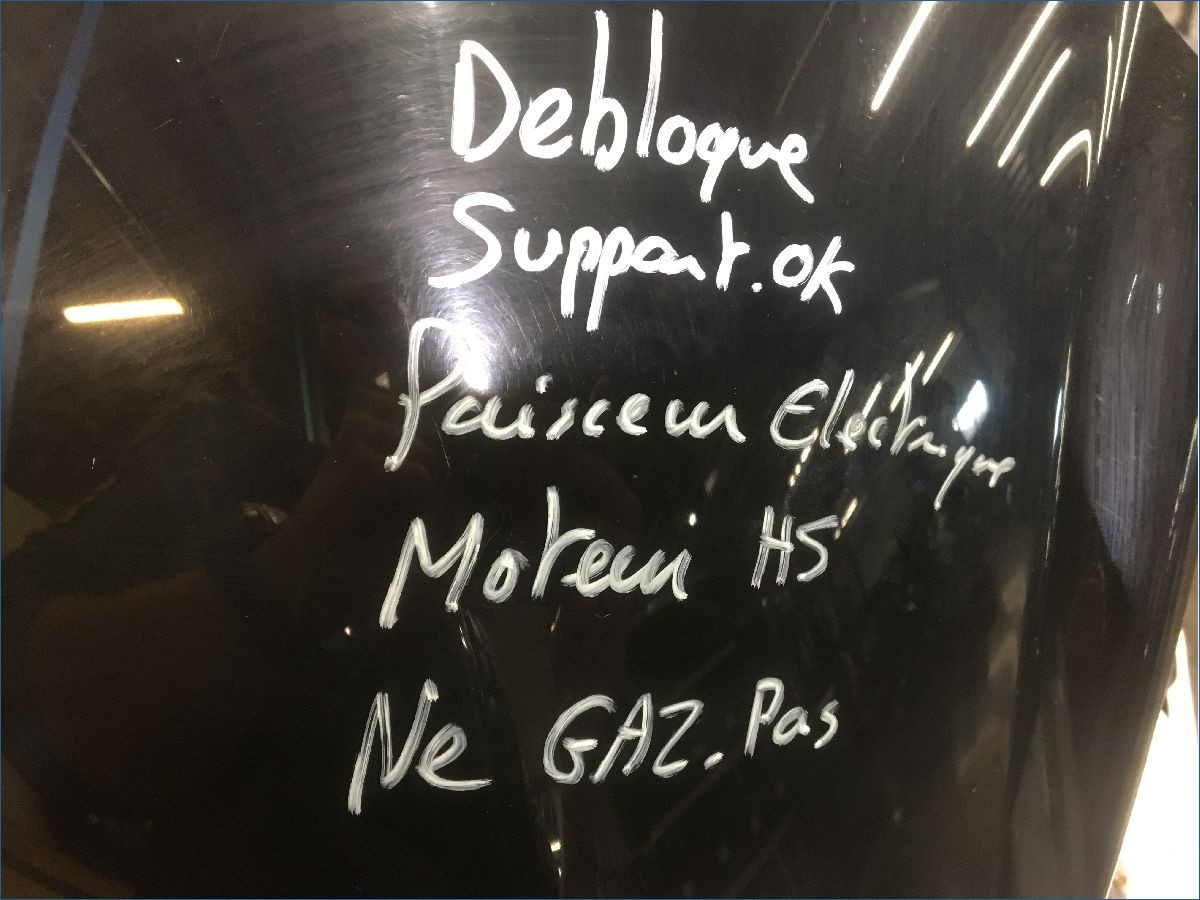 Debloque
Support.ok
Faisceau Eléctrique
Moteur HS
Ne GAZ. Pas